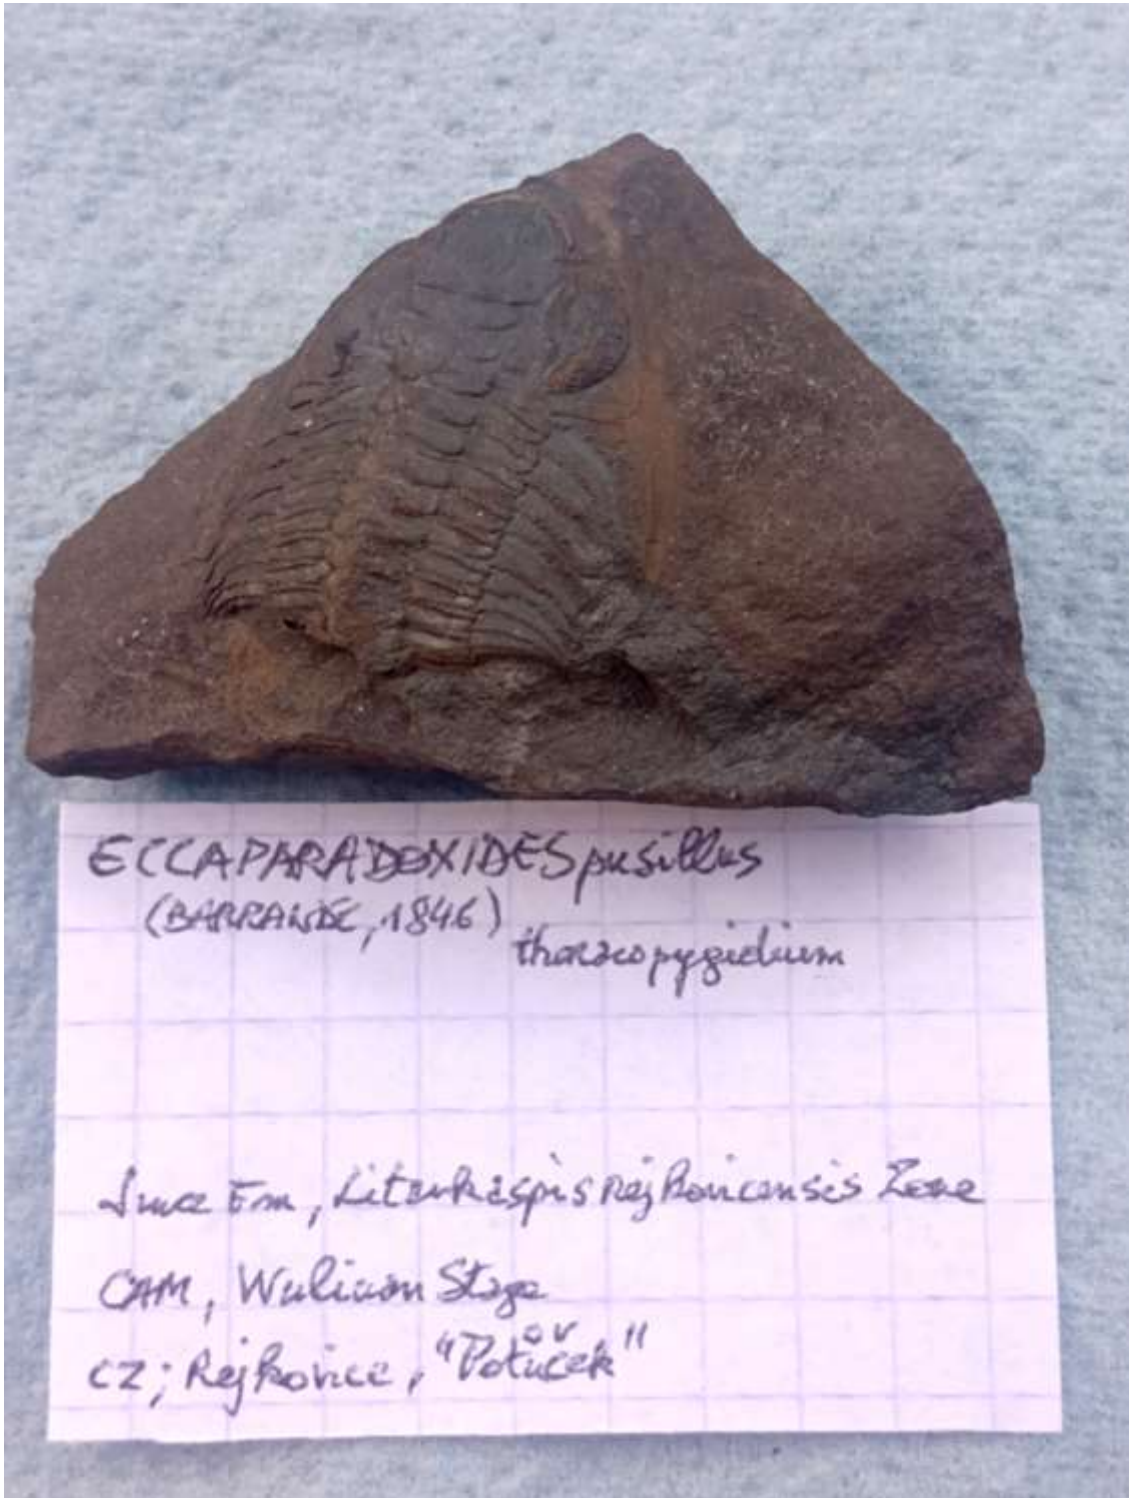 ECCAPARADOXIDES pusillus
(BARRANDE, 1846)
thoracopygidium
Jince Fm, Litavkaspis rejkovicensis Zone
CAM, Wuliuan Stage
CZ; Rejkovice, "Potůček"